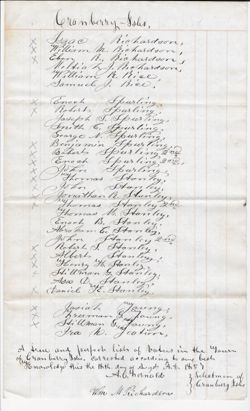 Cranberry Isles.
Isaac Richardson,
William M. Richardson,
Richardson,
Richardson,
William R. Rice,
Samuel J. Rice.
Enoch Spurling
Roberts Spurling,
Joseph S. Spurling,
Smith C. Spurling,
George N. Spurling,
Benjamin Spurling,
Roberts Spurling 2nd
Enoch Spurling 2nd,
John Spurling,
Thomas Stanley,
John Stanley,
Jonathan R. Stanley,
Thomas Stanley 2nd
Thomas M. Stanley,
Enoch B. Stanley,
Abraham C. Stanley,
John Stanley 2nd
Robert S. Stanley,
Alberts Stanley,
Henry H. Stanley,
Stillman G. Stanley,
Asa D. Stanley,
Daniel K. Stanley,
Josiah Young,
Freeman G. Young,
Stillman G. Young,
Ira R.
A true and perfect list of Voters in the Town
of Cranberry Isles, corrected according to my best
Knowledge this the 8th day of Sept. A.D. 1857
A. C. Arnold Selectmen of
Wm M. Richardson Cranberry Isles